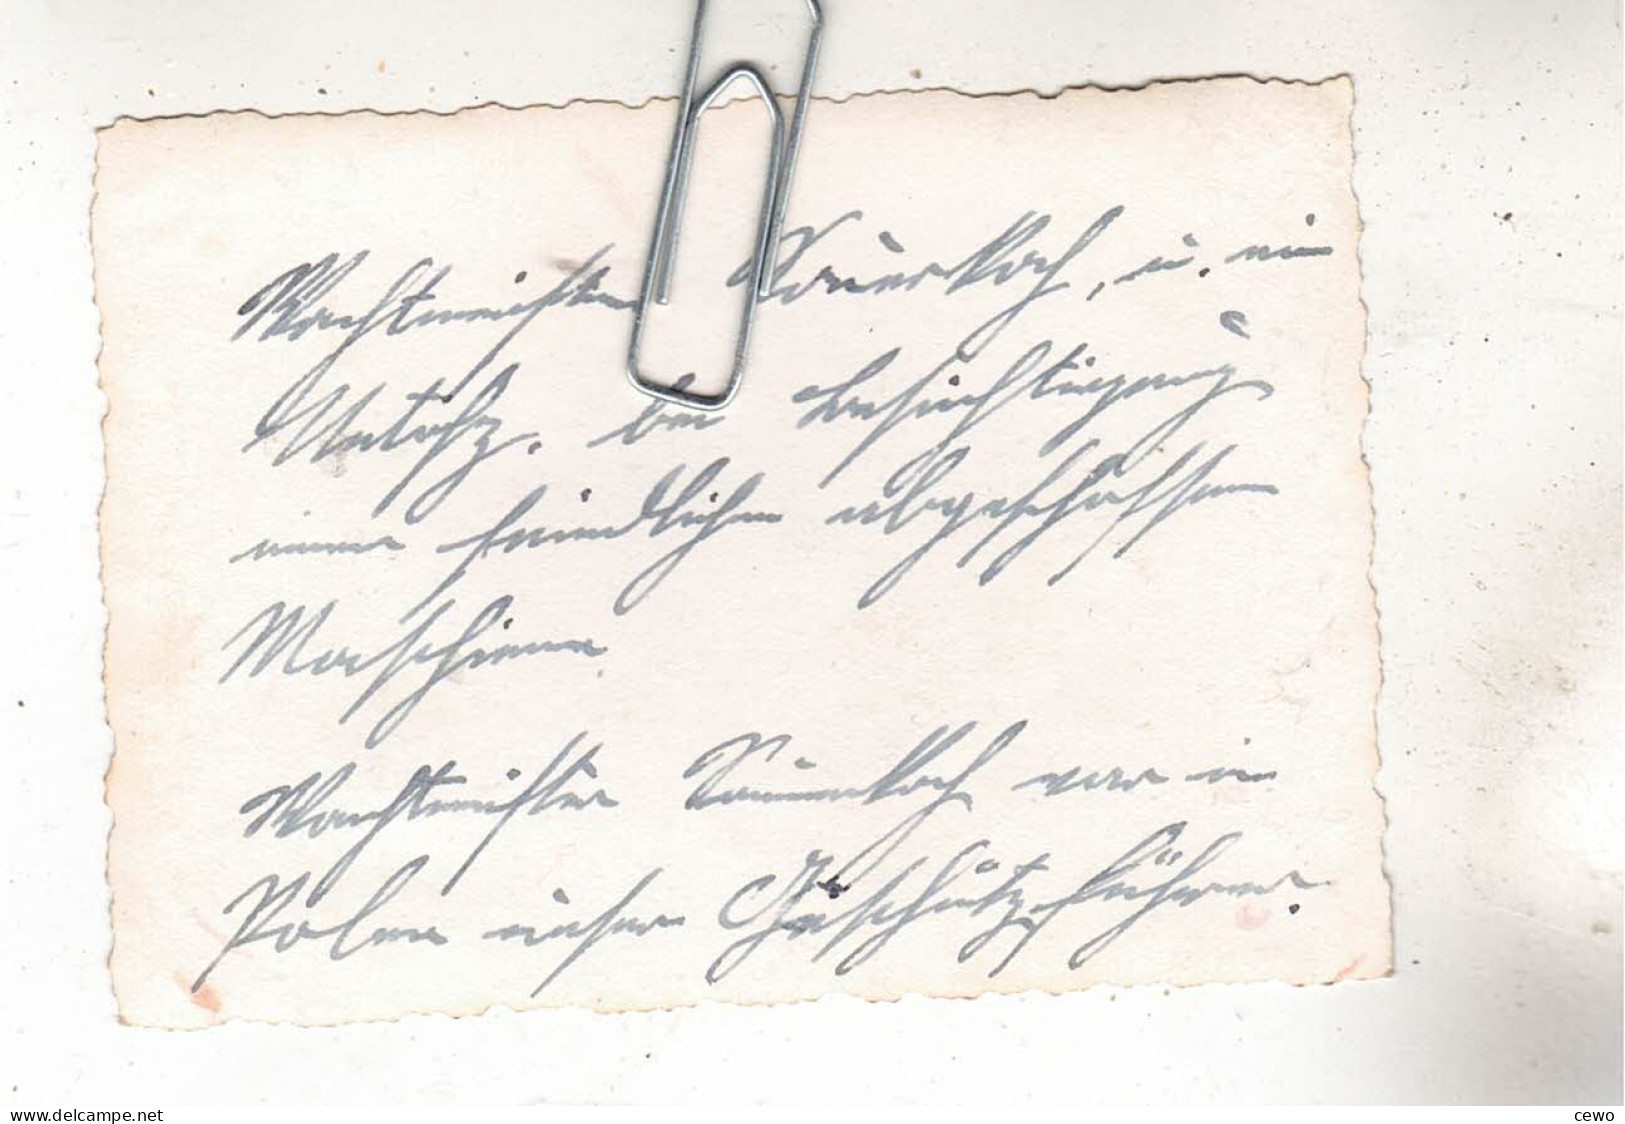 Wachtmeister Sauerkoch, u. ein
Untofz. bei besichtigung
einer feindlichen abgeschossenen
Maschiene
Wachtmeister Sauerkoch war in
Polen unser Geschützführer.
www.delcampe.net
cewo